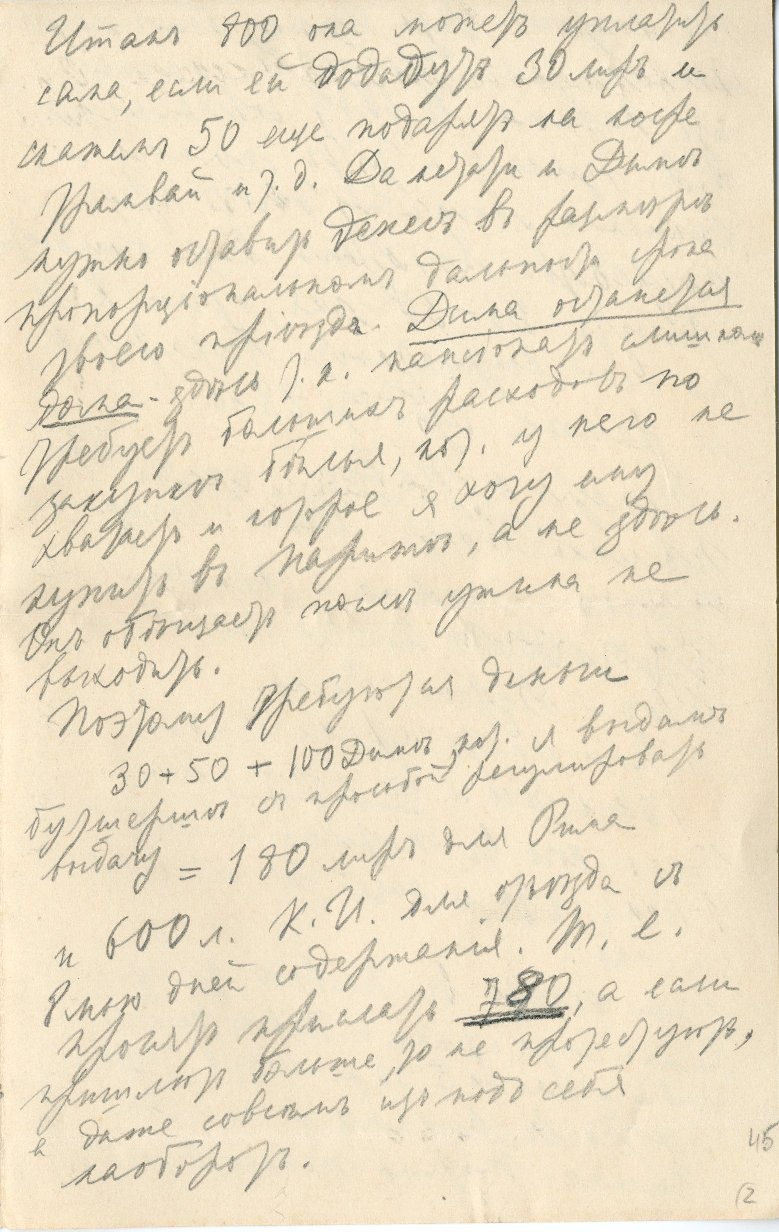 Итакъ 800 она можетъ уплатить
сама, если ей дододутъ 30 лиръ и
скажемъ 50 еще подарятъ на кофе
трамвай и т. д. Да кстати и Димѣ
нужно оставить денегъ въ размѣрѣ
пропорціональномъ дальности срока
твоего пріѣзда. Дима останется
дома - здѣсь т. к. пансіонатъ слишкомъ
требуетъ большихъ расходовъ по
закупкѣ бѣлья, кот. у него не
хватаетъ и которое я хочу ему
купить въ Парижѣ, а не здѣсь.
Онъ обѣщаетъ послѣ ужина не
выходить.
Поэтому требуются деньги
30 + 50 + 100 Димѣ, кот. я выдамъ
бухтершѣ съ просьбой регулировать
выдачу = 180 лиръ для Рима
и 600 л. К. И. для отъѣзда съ
8мью дней содержанія. Т. е.
просятъ прислать 780, а если
пришлютъ больше, то не протестуютъ,
и даже совсѣмъ изъ подъ себя
наоборотъ.
45
(2